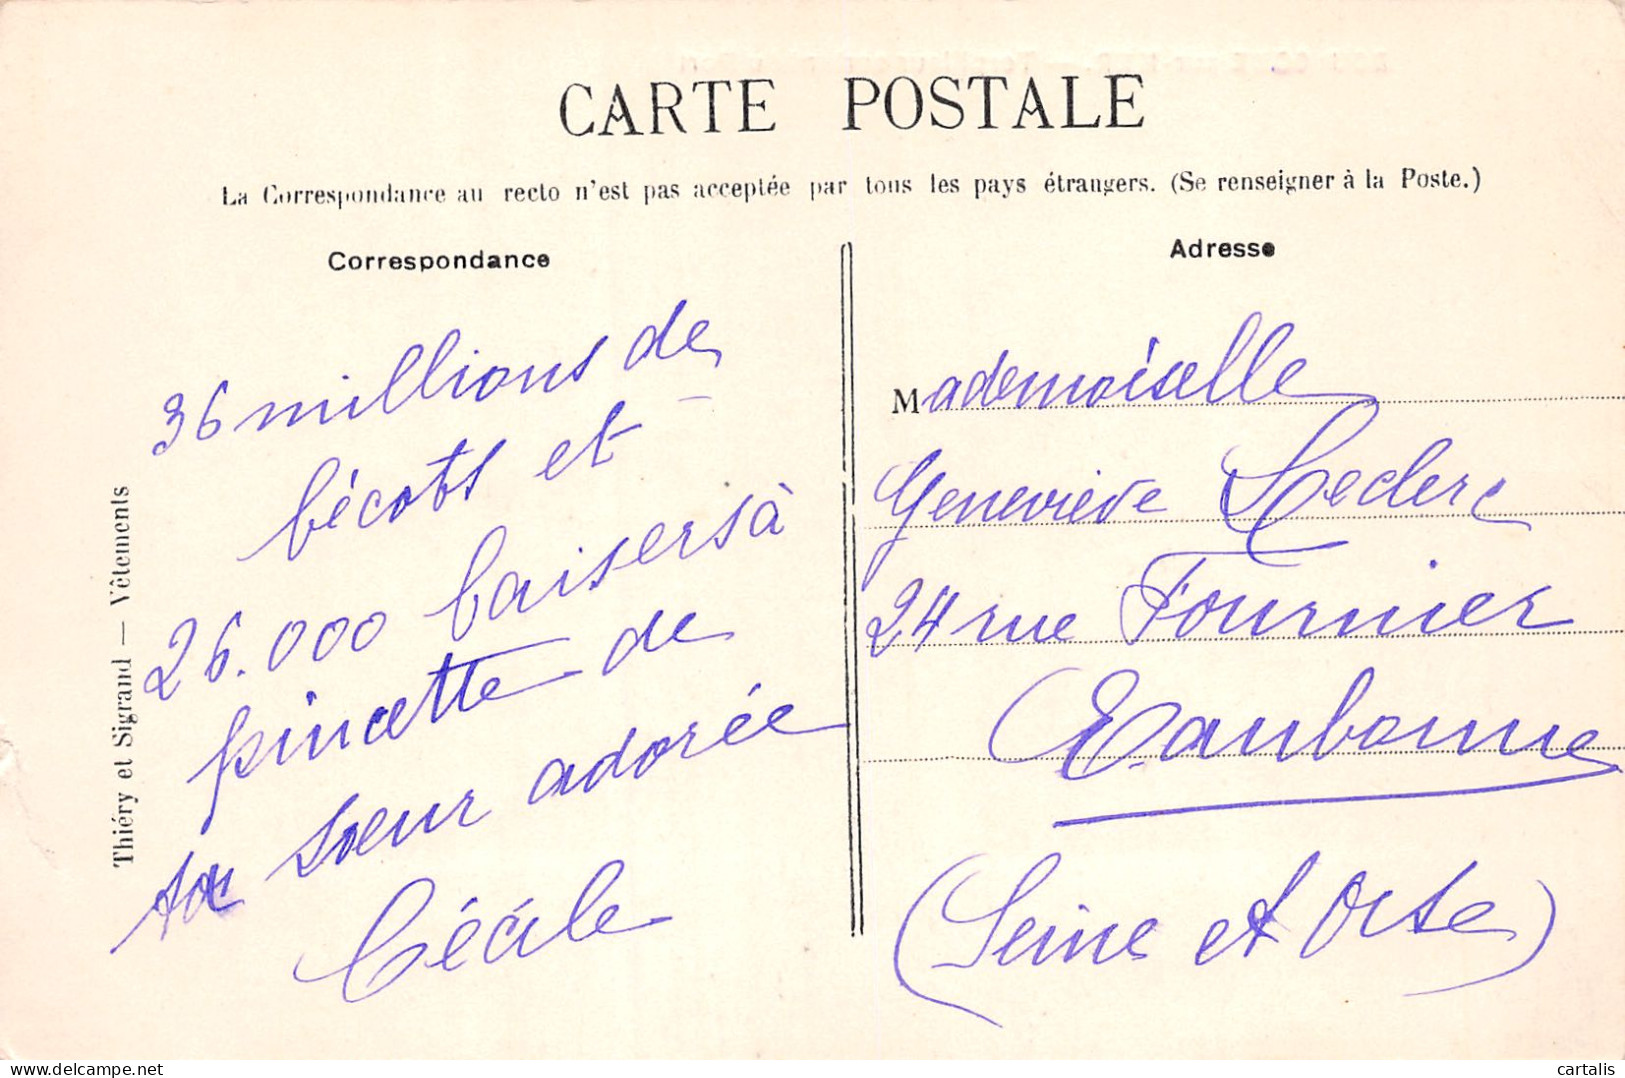 CARTE POSTALE
La Correspondance au recto n'est pas acceptée par tous les pays étrangers. (Se renseigner à la Poste.)
Correspondance
36 millions de
bécots et
26.000 baisers à
pincette de
ta sœur adorée
Cécile
Thiéry et Sigrand — Vêtements
Adresse
Mademoiselle
Geneviève Leclerc
24 rue Fournier
Eaubonne
(Seine et Oise)
delcampe.net
cartalis